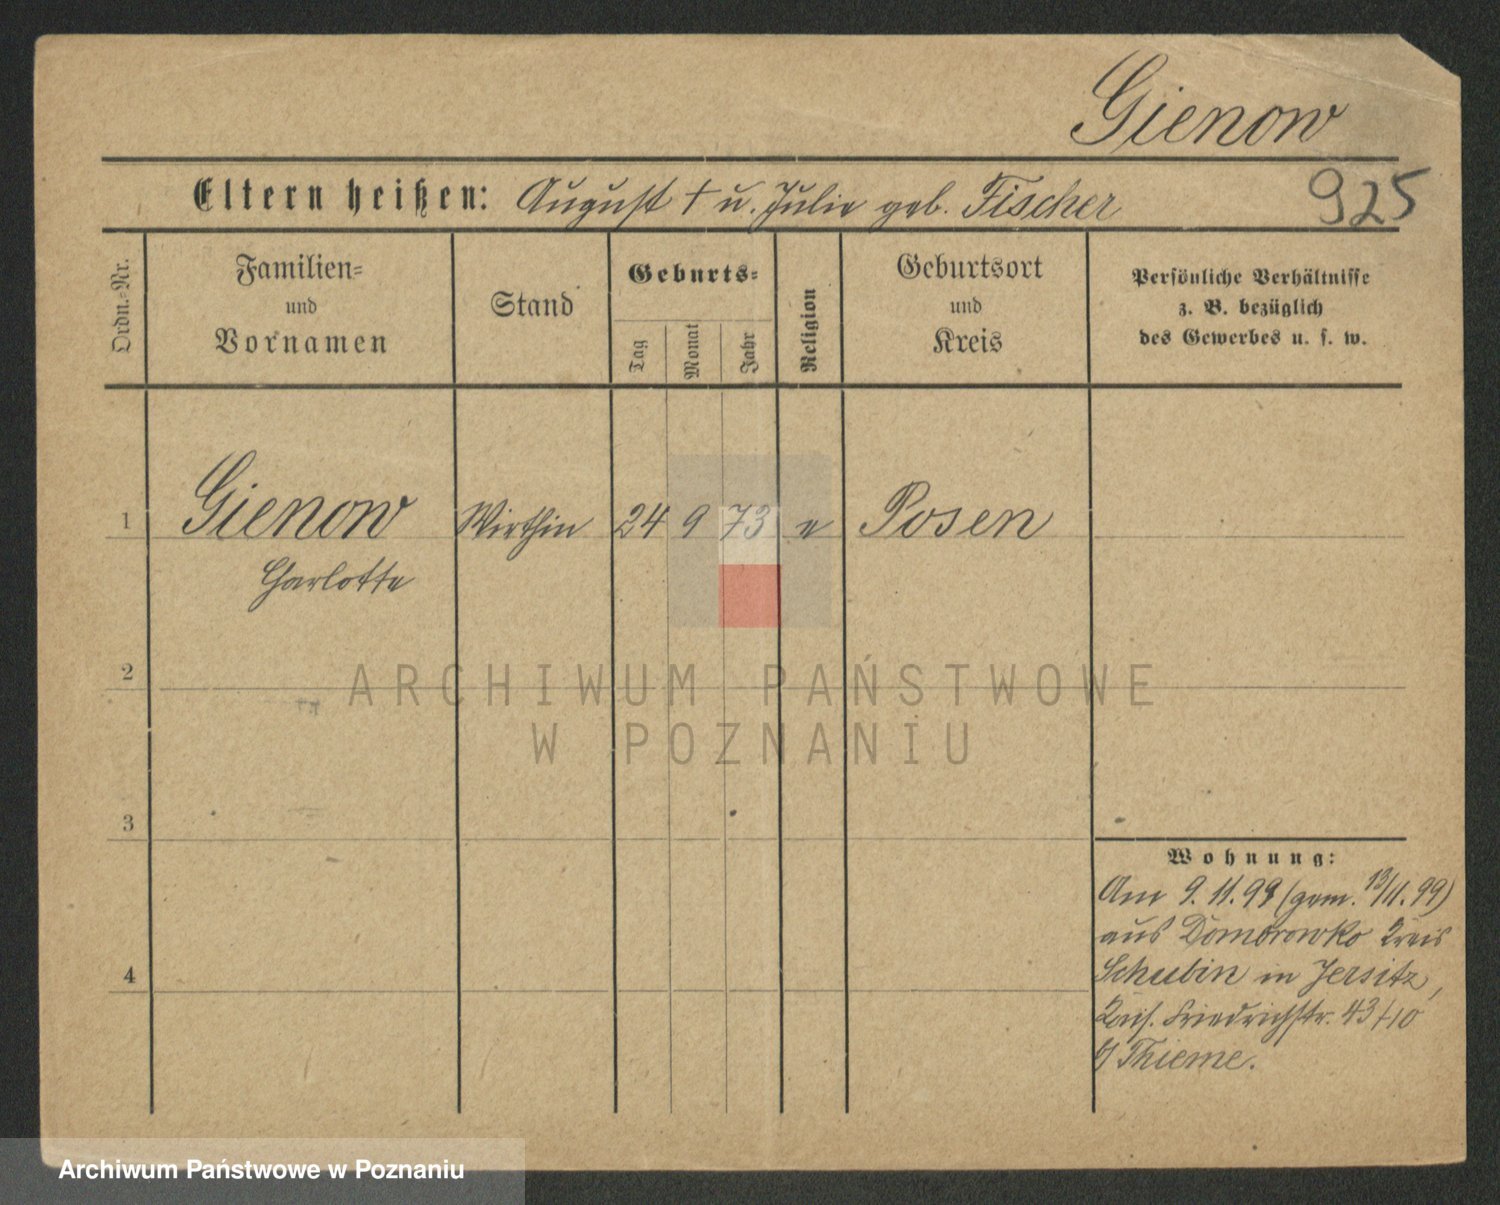 Gienow
925
Eltern heißen: August † u. Julie geb. Fischer
Ordn.-Nr.
Familien-
und
Vornamen
Stand
Geburts-
Tag
Monat
Jahr
Religion
Geburtsort
und
Kreis
Persönliche Verhältnisse
z. B. bezüglich
des Gewerbes u. s. w.
1 Gienow Wirthin 24 9 73 e Posen
Charlotte
2
3
4
Wohnung:
Am 9.11.99 (gem. 13/11.99)
aus Dombrowko Kreis
Schubin in Jersitz,
Kais. Friedrichstr. 43/10
b/ Thieme.
ARCHIWUM PAŃSTWOWE
W POZNANIU
Archiwum Państwowe w Poznaniu